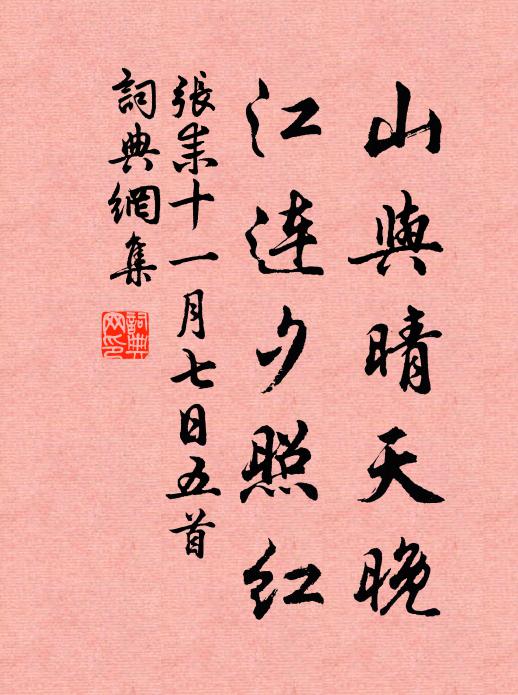 山與晴天晚
江連夕照紅
張耒十一月七日五首
詞典網集
詞典網印